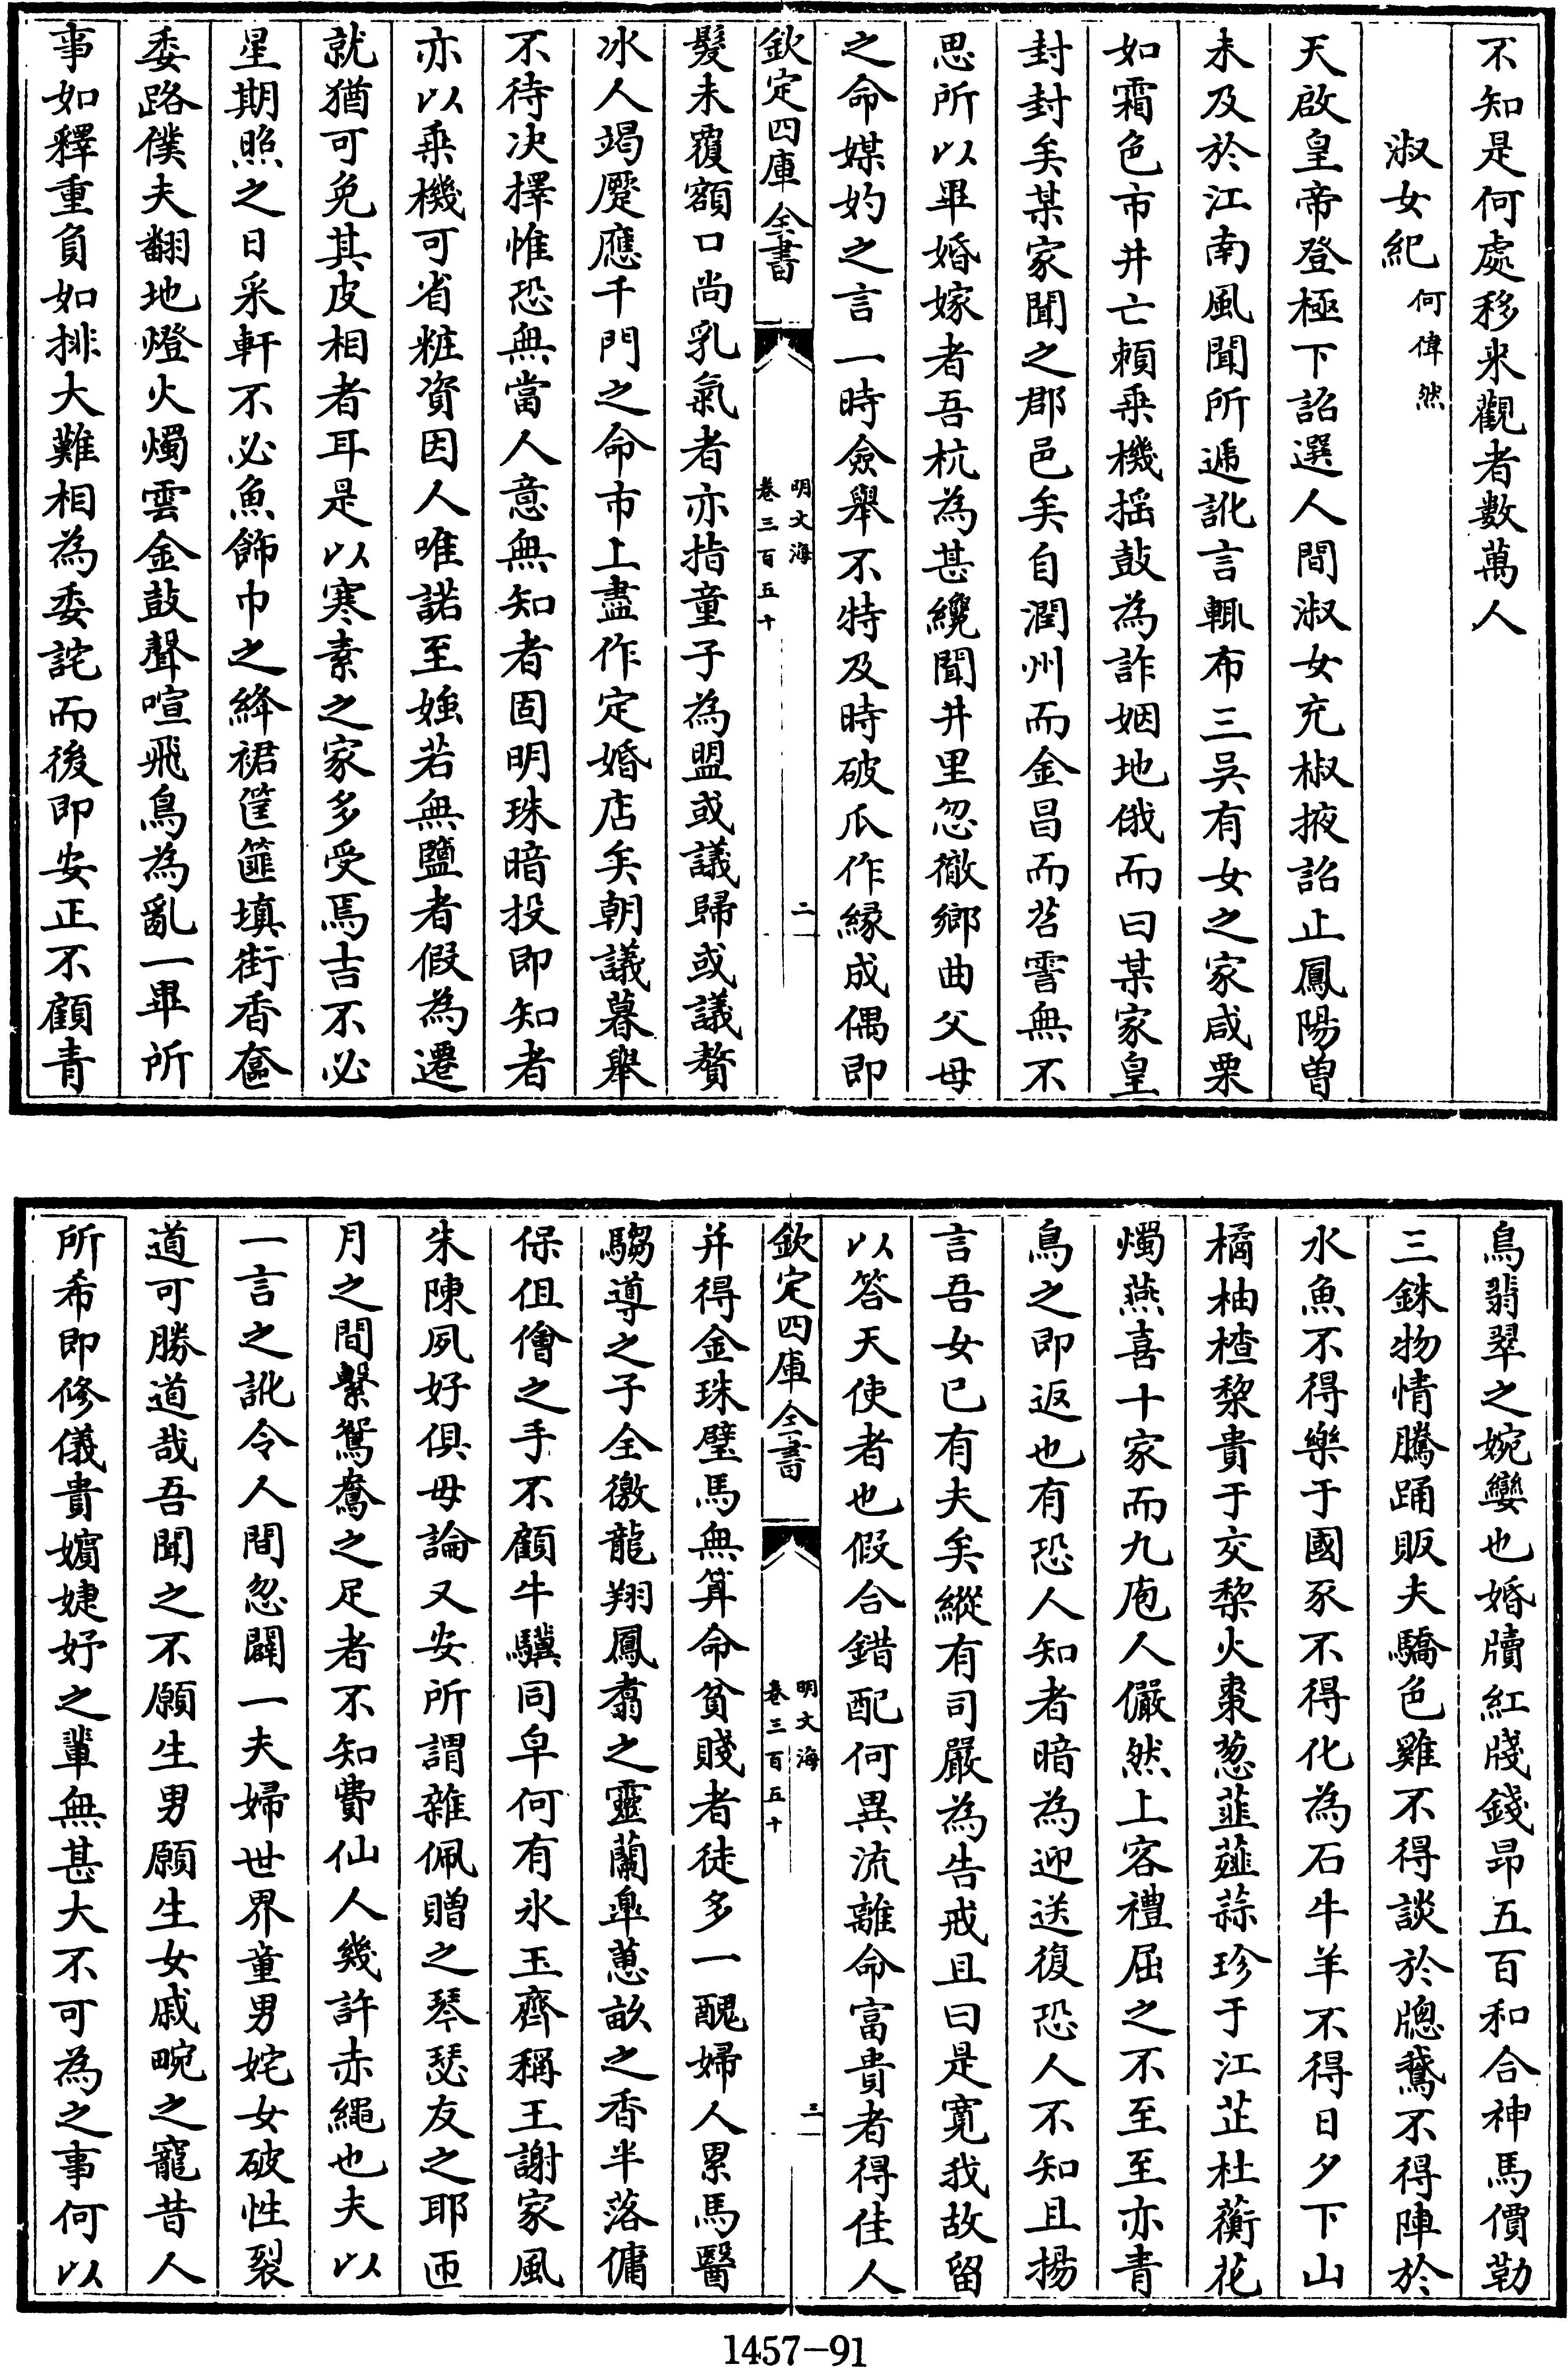 不知是何處移来觀者數萬人
淑女紀何偉然
天啟皇帝登極下詔選人間淑女充椒掖詔止鳳陽曽
未及於江南風聞所遞訛言輒布三吳有女之家咸栗
如霜色市井亡賴乗機揺鼓為詐姻地俄而曰某家皇
封封矣某家聞之郡邑矣自潤州而金昌而苕霅無不
思所以畢婚嫁者吾杭為甚纔聞井里忽徹鄉曲父母
之命媒妁之言一時僉舉不特及時破瓜作縁成偶即
欽定四庫全書
明文海
卷三百五十
二
髮未覆額口尚乳氣者亦指童子為盟或議歸或議贅
冰人竭蹷應千門之命市上盡作定婚店矣朝議暮舉
不待决擇惟恐無當人意無知者固明珠暗投即知者
亦以乗機可省粧資因人唯諾至嫫若無鹽者假為遷
就猶可免其皮相者耳是以寒素之家多受焉吉不必
星期照之日采軒不必魚飾巾之絳裙筐篚填街香奩
委路僕夫翻地燈火燭雲金鼓聲喧飛鳥為亂一畢所
事如釋重負如排大難相為委詫而後即安正不顧青
鳥翡翠之婉孌也婚牘紅牋錢昂五百和合神馬價勒
三銖物情騰踊販夫驕色雞不得談於牕鵞不得陣於
水魚不得樂于國豕不得化為石牛羊不得日夕下山
橘柚楂棃貴于交棃火棗葱韮薤蒜珍于江芷杜蘅花
燭燕喜十家而九庖人儼然上客禮屈之不至至亦青
鳥之即返也有恐人知者暗為迎送復恐人不知且揚
言吾女已有夫矣縱有司嚴為告戒且曰是寛我故留
以答天使者也假合錯配何異流離命富貴者得佳人
欽定四庫全書
明文海
卷三百五十
三
并得金珠璧馬無算命貧賤者徒多一醜婦人累馬醫
騶導之子全徼龍翔鳳翥之靈蘭臯蕙畝之香半落傭
保伹儈之手不顧牛驥同皁何有氷玉齊稱王謝家風
朱陳夙好俱毋論又安所謂雜佩贈之琴瑟友之耶匝
月之間繫鴛鴦之足者不知費仙人幾許赤繩也夫以
一言之訛令人間忽闢一夫婦世界童男姹女破性裂
道可勝道哉吾聞之不願生男願生女戚畹之寵昔人
所希即修儀貴嬪婕妤之輩無甚大不可為之事何以
1457-91